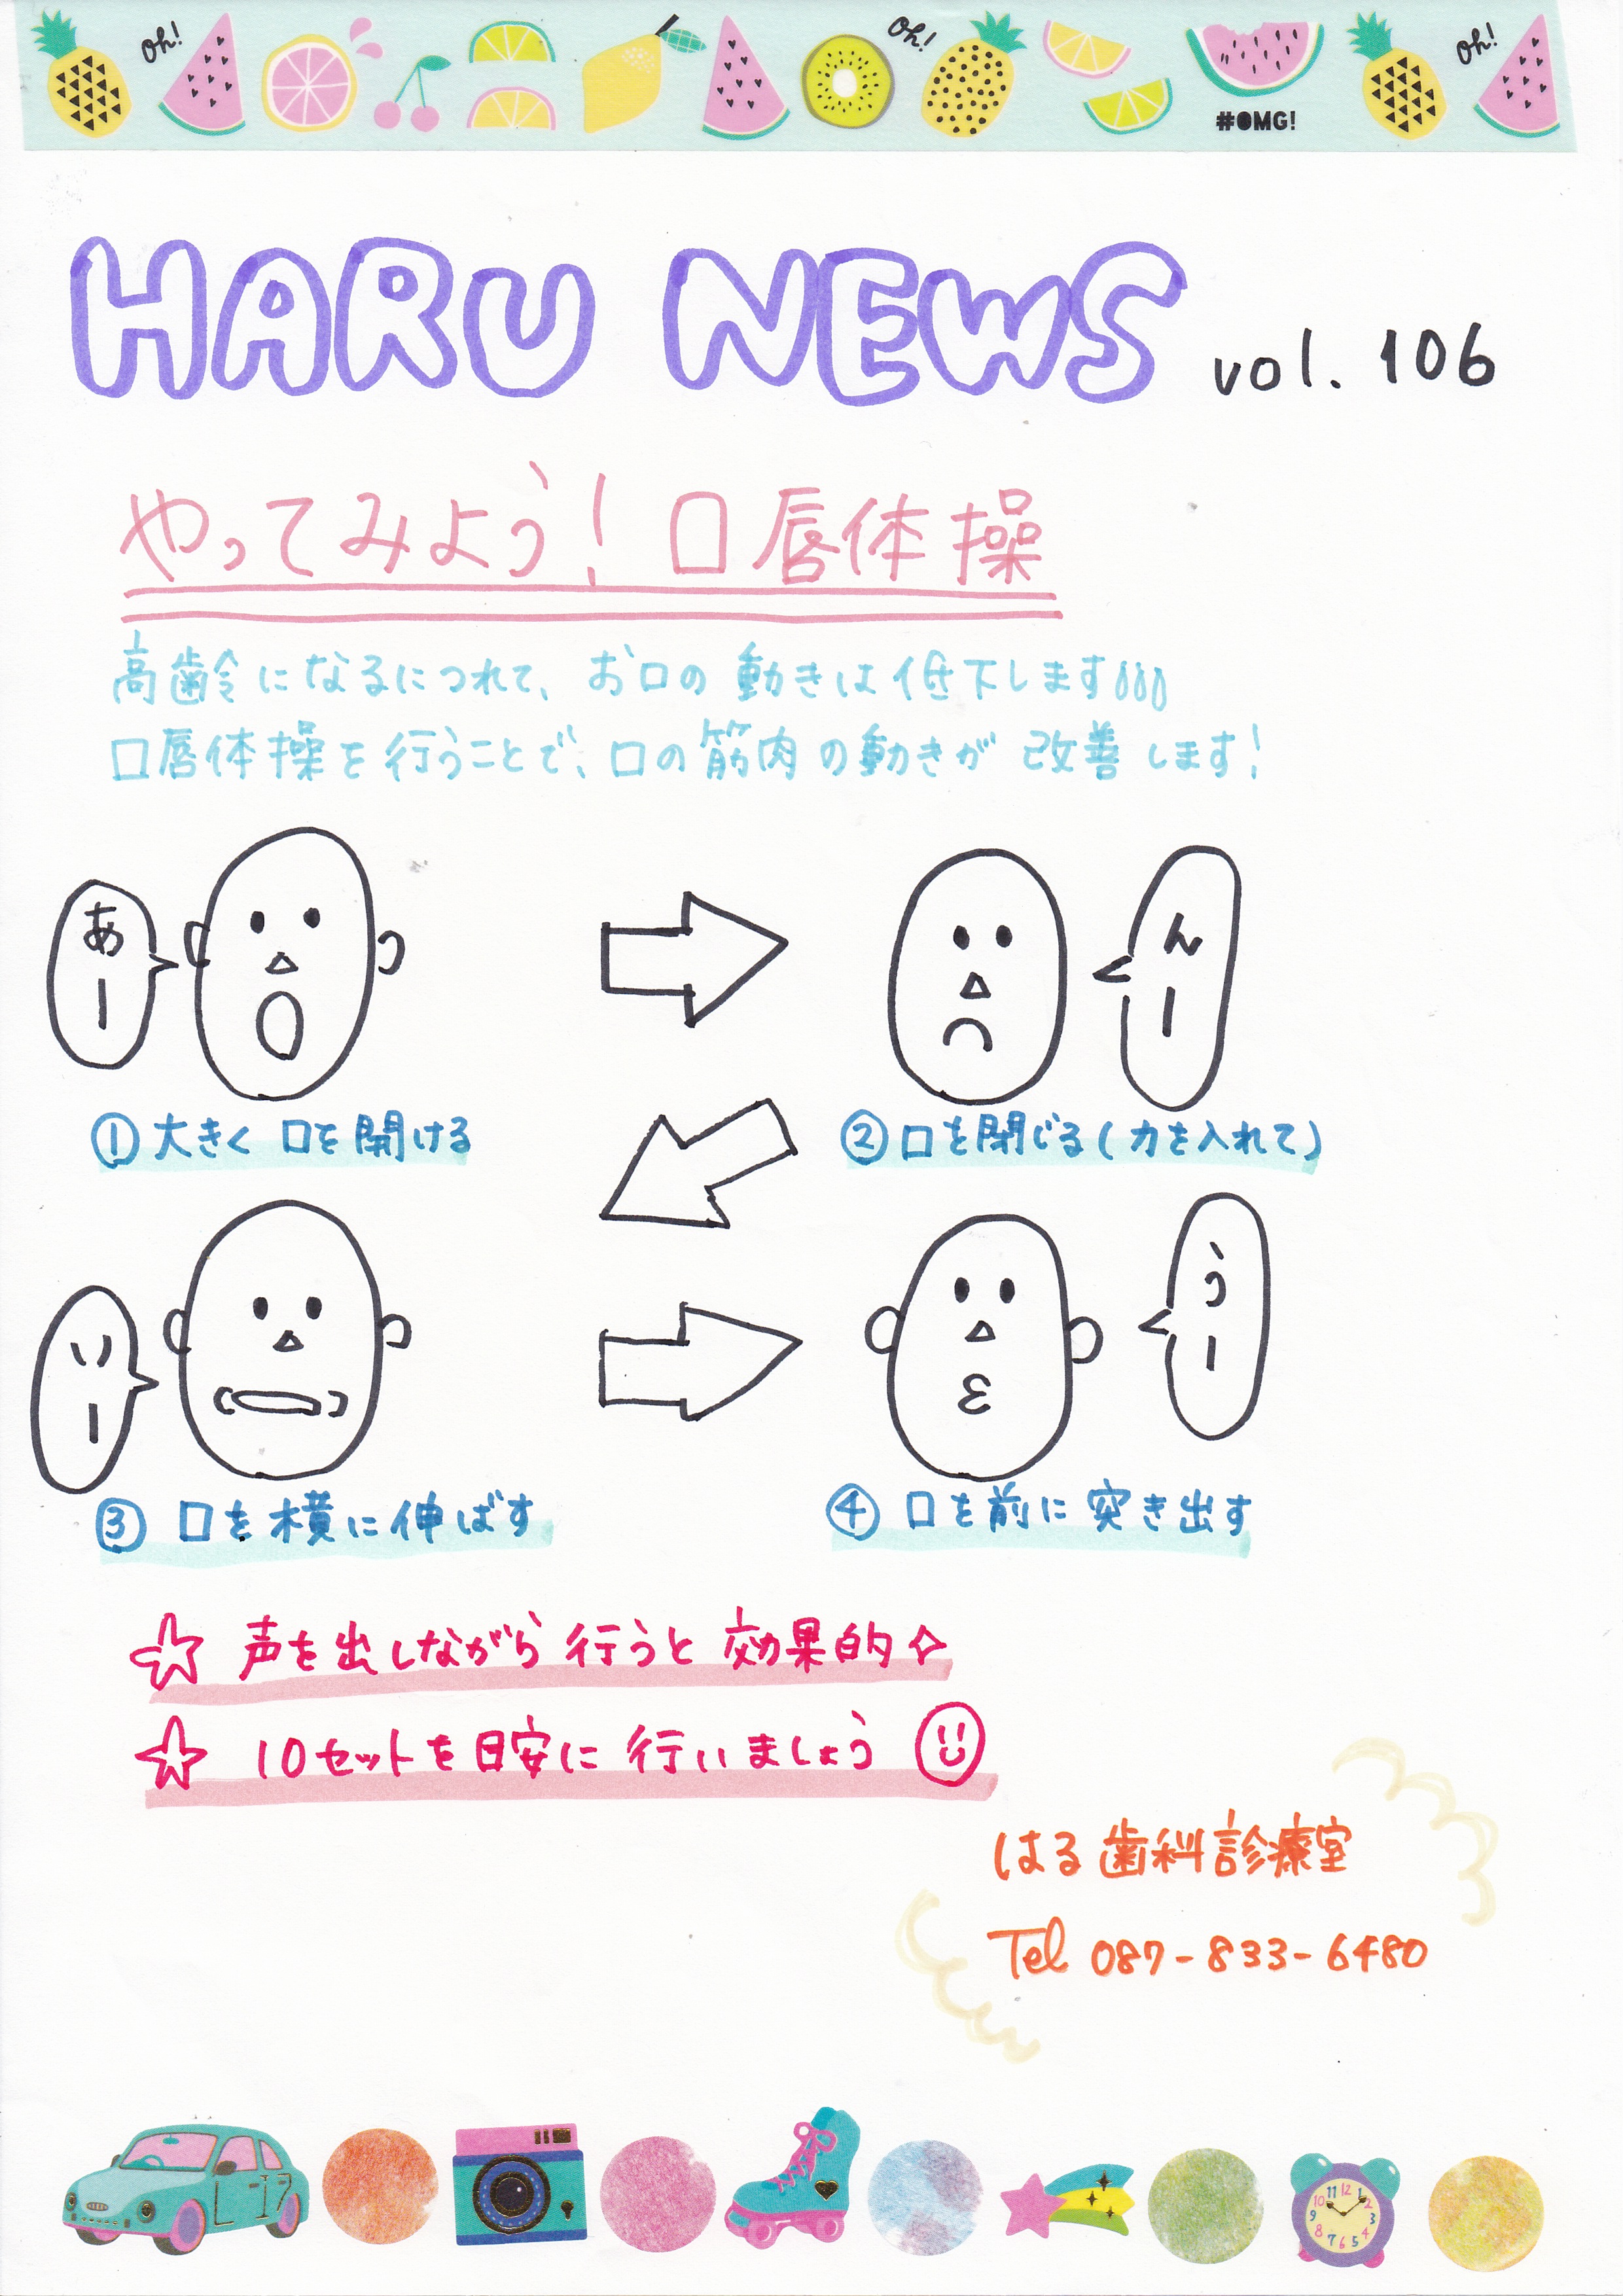 oh!
oh!
oh!
#OMG!
HARU NEWS vol. 106
やってみよう！口唇体操
高齢になるにつれて、お口の動きは低下します
口唇体操を行うことで、口の筋肉の動きが改善します！
あー
んー
①大きく口を開ける
②口を閉じる(力を入れて)
いー
うー
③口を横に伸ばす
④口を前に突き出す
☆声を出しながら行うと効果的✧
☆10セットを目安に行いましょう
はる歯科診療室
Tel 087-833-6480
10 11 12 1 2
9 3
8 7 6 5 4